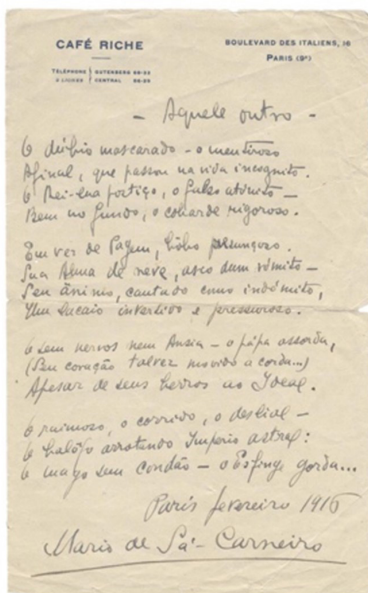 CAFÉ RICHE
BOULEVARD DES ITALIENS, 16
PARIS (9e)
TÉLÉPHONE
GUTENBERG
CENTRAL
— Aquele outro —
O dúbio mascarado – o mentiroso
Afinal, que passou na vida incognito.
O Rei-lua postiço, o falso atónito –
Bem no fundo, o cobarde rigoroso.
Em vez de Pagem, bôbo presunçoso.
Sua Alma de neve, asco dum vómito –
Seu ânimo, cantado como indómito,
Um lacaio invertido e pressuroso.
O sem nervos nem Ansia – o pápa assorda,
(Seu coração talvez movido a corda...)
Apesar de seus berros ao Ideal.
O raimoso, o corrido, o desleal –
O balôfo arrotando Imperio astral:
O mago sem condão – o Esfinge gorda...
Paris fevereiro 1916
Mario de Sá-Carneiro